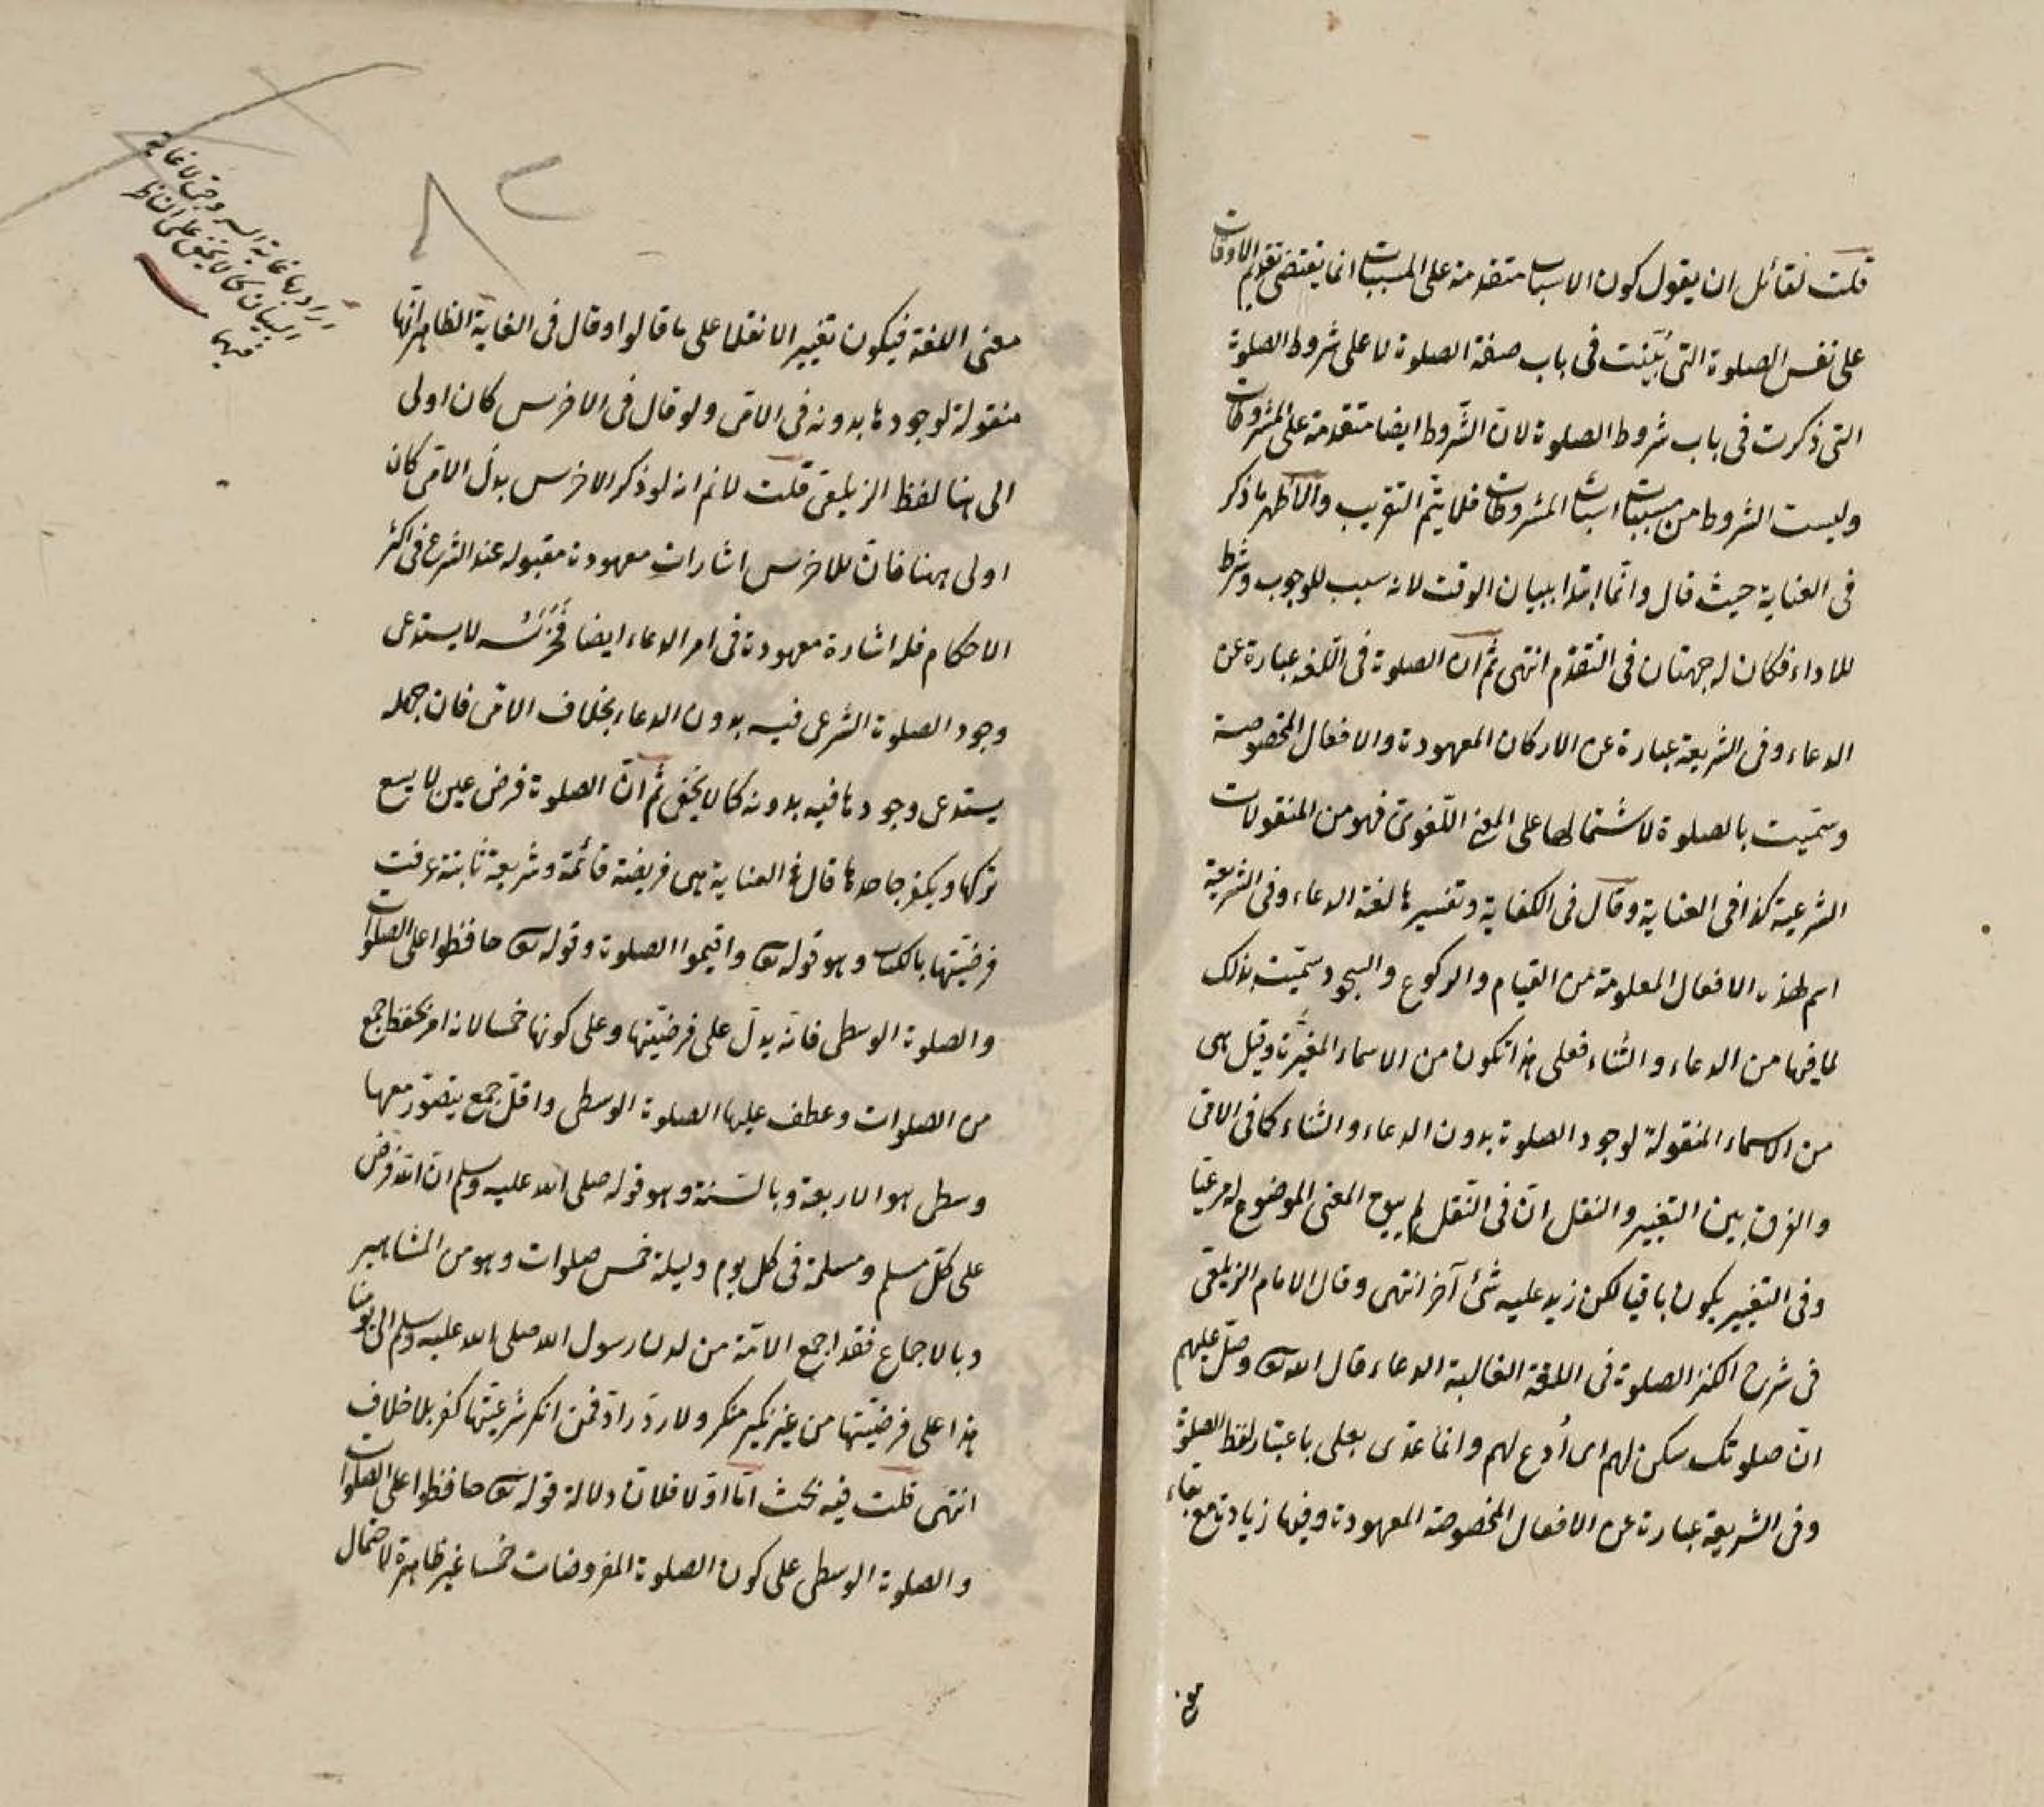 قلت لقائل ان يقول كون الاسباب متقدمة على المسببات انما يقتضى تقديم الاوقات
على نفس الصلوة التى بُيّنت فى باب صفة الصلوة لا على شروط الصلوة
التى ذكرت فى باب شروط الصلوة لان الشّروط ايضا متقدمة على المشروطات
وليست الشروط من مسببات اسباب المشروطات فلا يتم التقريب والاظهر ما ذكر
فى العناية حيث قال وانّما ابتدا ببيان الوقت لانه سبب للوجوب وشرط
للاداء فكان له جهتان فى التقدّم انتهى ثم ان الصلوة فى اللّغه عبارة عن
الدعاء وفى الشريعة عبارة عن الاركان المعهودة والافعال المخصوصة
وسمّيت بالصلوة لاشتمالها على المعنى اللّغوى فهو من المنقولات
الشرعية كذا فى العناية وقال فى الكفاية وتفسيرها لغة الدعاء وفى الشريعة
اسم لهذه الافعال المعلومة من القيام والركوع والسجود سمّيت بذلك
لما فيها من الدعاء والثناء فعلى هذا تكون من الاسماء المغيّرة وقيل هى
من الاسماء المنقولة لوجود الصلوة بدون الدعاء والثناء كما فى الامى
والفرق بين التغيير والنقل انّ فى النّقل لم يبق المعنى الموضوع له مرعيّا
وفى التغيير يكون باقيا لكن زيد عليه شئ آخر انتهى وقال الامام الزيلعى
فى شرح الكنز الصلوة فى اللغة الغالبة الدعاء قال الله تع وصلّ عليهم
انّ صلوتك سكن لهم اى اُدع لهم وانما عدّى بعلى باعتبار لفظ الصلوة
وفى الشريعة عبارة عن الافعال المخصوصة المعهودة وفيها زيادة مع بقاء
معنى
معنى اللغة فيكون تغييرا لا نقلا على ما قالوا وقال فى الغاية الظاهر انّها
منقولة لوجودها بدونه فى الامى ولو قال فى الاخرس كان اولى
الى هنا لفظ الزيلعى قلت لا نم انه لو ذكر الاخرس بدل الامى كان
اولى ههنا فان للاخرس اشارات معهودة مقبوله عند الشرع فى اكثر
الاحكام فله اشارة معهودة فى امر الدعاء ايضا فَخَرَسُه لا يستدعى
وجود الصلوة الشرعى فيه بدون الدعاء بخلاف الامى فان جهله
يستدعى وجودها فيه بدونه كما لا يخفى ثم انّ الصلوة فرض عين لا يسع
تركها ويكفر جاحدها قال فى العناية هى فريضة قائمة وشريعة ثابتة عرفت
فرضيّتها بالكتاب وهو قوله تع واقيموا الصلوة وقوله تع حافظوا على الصلوات
والصلوة الوسطى فانّه يدلّ على فرضيّتها وعلى كونها خمسا لانه امر بحفظ جمع
من الصلوات وعطف عليها الصلوة الوسطى واقلّ جمع يتصوّر معها
وسطى هو الاربعة وبالسّنة وهو قوله صلى الله عليه وسلم ان الله فرض
على كلّ مسلم ومسلمة فى كل يوم وليلة خمس صلوات وهو من المشاهير
وبالاجماع فقد اجمع الامّة من لدن رسول الله صلى الله عليه وسلم الى يومنا
هذا على فرضيّتها من غير نكير منكر ولا ردّ رادّ فمن انكر شرعيّتها كفر بلا خلاف
انتهى قلت فيه بحث امّا اوّلا فلان دلالة قوله تع حافظوا على الصلوات
والصلوة الوسطى على كون الصلوة المفروضات خمسا غير ظاهرة لاحتمال
اراد بها غاية السروجى لا غاية
البيان كما لا يخفى على الناظر
فيها
٨٢